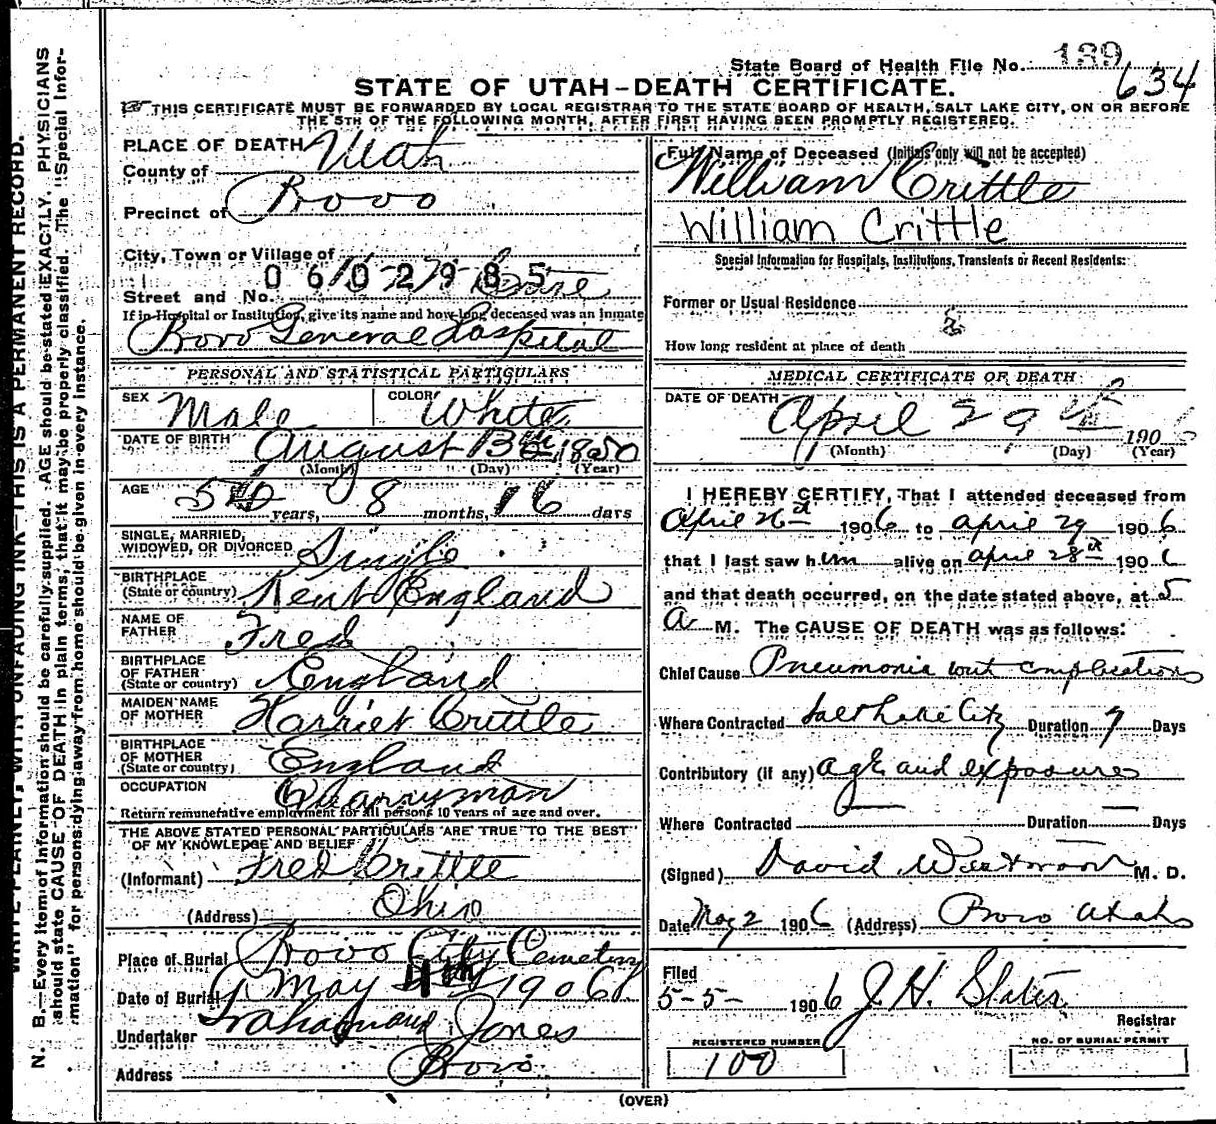 State Board of Health File No. 189
634
STATE OF UTAH-DEATH CERTIFICATE.
THIS CERTIFICATE MUST BE FORWARDED BY LOCAL REGISTRAR TO THE STATE BOARD OF HEALTH, SALT LAKE CITY, ON OR BEFORE
THE 5TH OF THE FOLLOWING MONTH, AFTER FIRST HAVING BEEN PROMPTLY REGISTERED.
PLACE OF DEATH
County of Utah
Precinct of Provo
City, Town or Village of
0602985
Street and No.
If in Hospital or Institution, give its name and how long deceased was an Inmate
Provo General Hospital
PERSONAL AND STATISTICAL PARTICULARS
SEX Male COLOR White
DATE OF BIRTH August 13th 1850
(Month) (Day) (Year)
AGE years, 8 months, 16 days
SINGLE, MARRIED,
WIDOWED, OR DIVORCED Single
BIRTHPLACE
(State or country) Kent England
NAME OF
FATHER Fred
BIRTHPLACE
OF FATHER
(State or country) England
MAIDEN NAME
OF MOTHER Harriet Crittle
BIRTHPLACE
OF MOTHER
(State or country) England
OCCUPATION Quarryman
Return remunerative employment for all persons 10 years of age and over.
THE ABOVE STATED PERSONAL PARTICULARS ARE TRUE TO THE BEST
OF MY KNOWLEDGE AND BELIEF
(Informant) Fred Crittle
(Address) Ohio
Place of Burial Provo City Cemetery
Date of Burial May 4th 1906
Undertaker Graham and Jones
Address Provo
Full Name of Deceased (Initials only will not be accepted)
William Crittle
William Crittle
Special Information for Hospitals, Institutions, Transients or Recent Residents:
Former or Usual Residence
How long resident at place of death
MEDICAL CERTIFICATE OF DEATH
DATE OF DEATH
April 29th 1906
(Month) (Day) (Year)
I HEREBY CERTIFY, That I attended deceased from
April 26th 1906 to april 29 1906
that I last saw him alive on april 28th 1906
and that death occurred, on the date stated above, at 5
a M. The CAUSE OF DEATH was as follows:
Chief Cause Pneumonia wit complications
Where Contracted Salt Lake City Duration 7 Days
Contributory (if any) age and exposures
Where Contracted Duration Days
(Signed) David Westwood M. D.
Date May 2 1906 (Address) Provo Utah
Filed
5-5- 1906 J. H. Slater
Registrar
REGISTERED NUMBER
100
NO. OF BURIAL PERMIT
(OVER)
WRITE PLAINLY, WITH UNFADING INK-THIS IS A PERMANENT RECORD.
N. B.-Every item of information should be carefully supplied. AGE should be stated EXACTLY. PHYSICIANS
should state CAUSE OF DEATH in plain terms, that it may be properly classified. The "Special Infor-
mation" for persons dying away from home should be given in every instance.